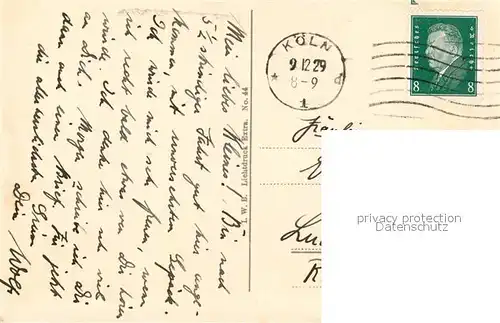 Mein liebes Kleines! Bin nach
5 1/2 stündiger Fahrt gut hier ange-
kommen, mit unversehrten Gepäck.
Ich würde mich sehr freuen, wenn
ich recht bald etwas von Dir hören
würde. Ich denke hier mich viel
an Dich. Morgen schreibe ich Dir
dann auch einen Brief. Für jetzt
die allerherzlichsten Grüße
Dein Wolf
I. W. B. Lichtdruck Extra. No. 44
KÖLN
9 12 29
8-9
1
DEUTSCHES REICH
8 8
Fräulein
privacy protection
Datenschutz